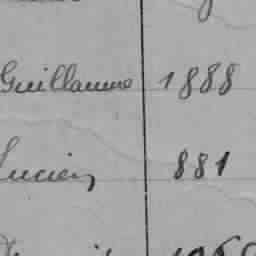 Guillaume 1888
Lucien 881